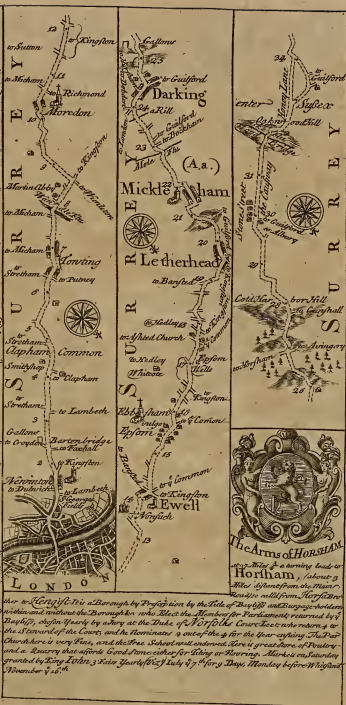 12
to Sutton
to Kingston
11
to Micham
to Richmond
Moredon
to Kingston
Martin Abby
to Wimbleton
to Micham
to Micham
Towting
to Stretham
to Putney
6
5
to Stretham
Clapham Common
Smiths shop
4
to Clapham
to Stretham
to Lambeth
3
Gallows
to Croyden
Barten bridge
to Foxhall
2
to Kingston
Newinton
to Dulwich
to Lambeth
St Georges Fields
LONDON
SURREY
Gallows
25
to Guilford
Darking
24 a Rill
to Guilford
to Buckham
23
Mole Flu
(A a.)
Mickleham
22
21
20
Letherhead
to Bansted
19
to Hedley
18
to Ashted Church
to Pedley
Epsom Wells
Whitcote
to Kingston
Ebbesham vulgo Epsom
16
to ye Comon
15
to Bansted
to ye Common
to Kingston
Ewell
Nonsuch
13
SURREY
34
to Guilford
Denny Lane
enter Sussex
Oakwood Hill
Stone Street
31
the Causway
30 to Guilford
to Albury
29
Cold Harbor Hill
to Horsham
to Avingery
26
SURREY
The Arms of HORSHAM.
At 27 Miles ¼ a turning leads to
Horsham, (about 9
Miles distant from the Main
Road) so call'd from Hors Bro-
ther to Hengist. It is a Borough by Prescription by the Title of Bayliffs and Burgage-holders
within and without the Borough &c who Elect the Members for Parliament, return'd by ye
Bayliffs, chosen Yearly by a Jury at the Duke of Norfolks Court Leet who return 4 to
the Steward of the Court, and he Nominates 2 out of the 4 for the Year ensuing. The Par
Church here is very Fine, and the Free School well endowed. Here is great store of Poultry
and a Quarry that affords Good Stone either for Tiling or Flooring. Markets on Saturday
granted by King John. 3 Fairs Yearly (Viz) July ye 7th for 9 Days, Monday before Whitsund
November ye 16th